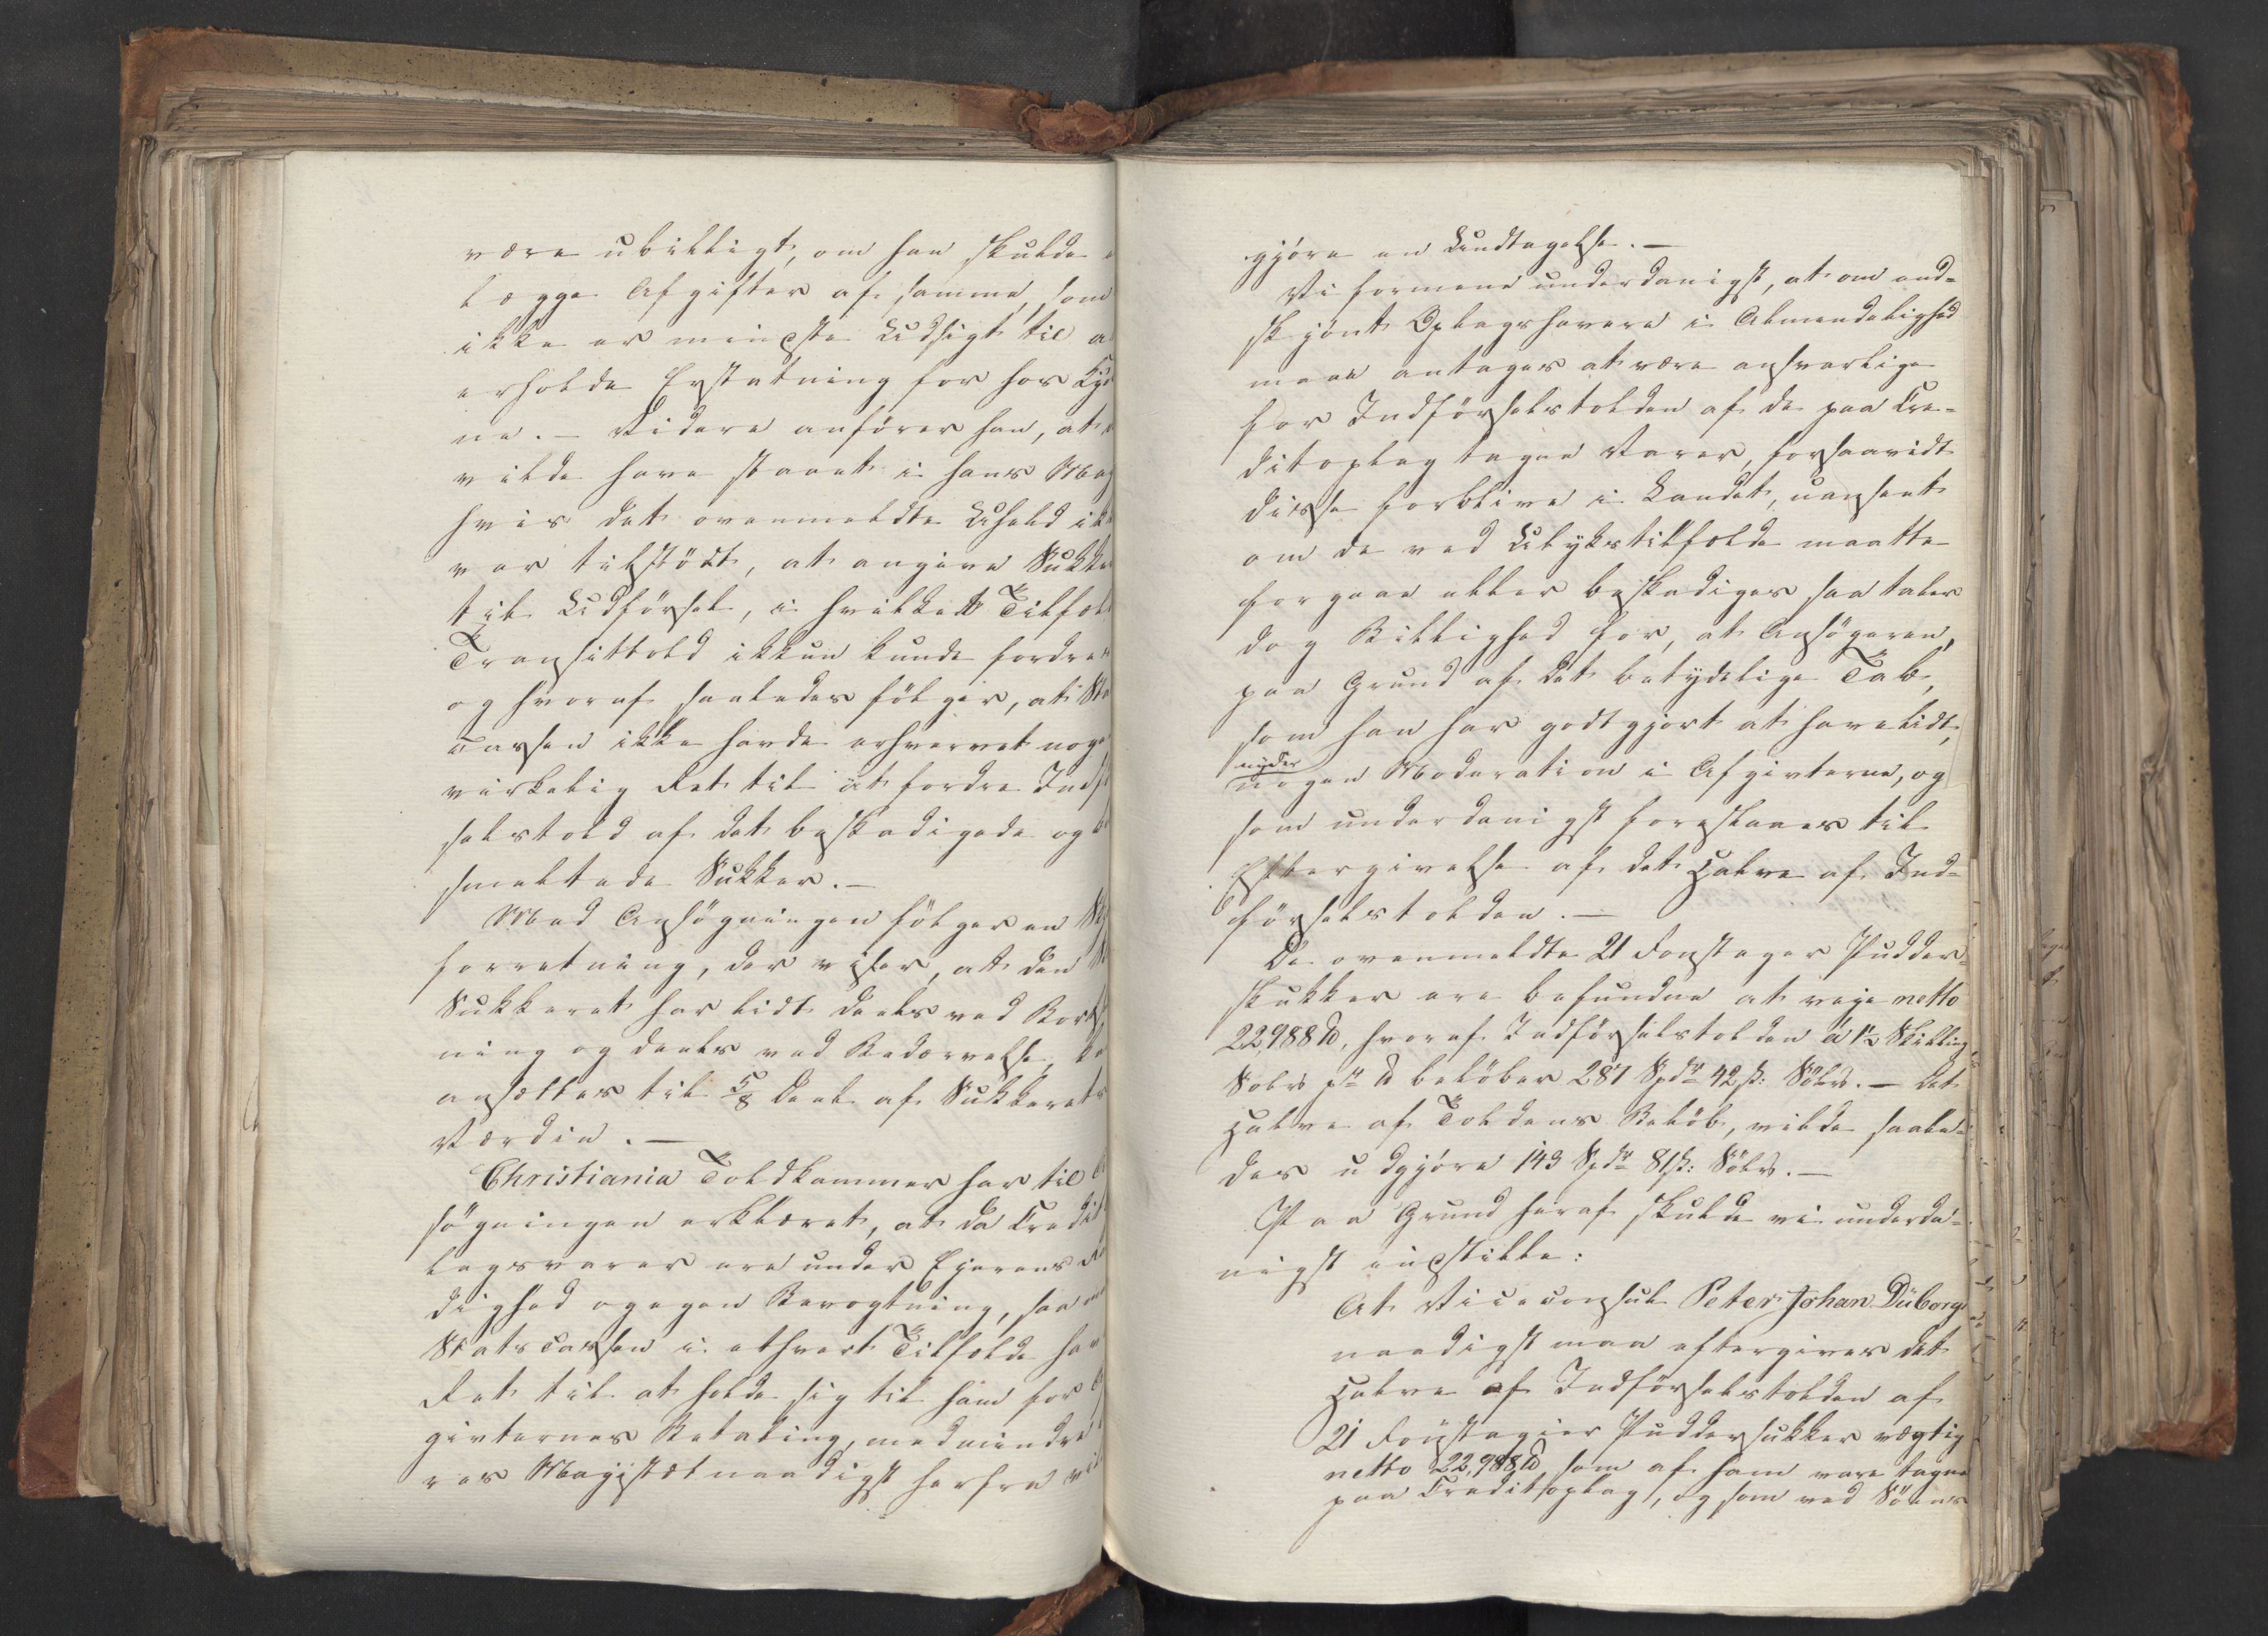 være ubilligt, om han skulde
lægge Afgifter af samme, som
ikke er mindste Udsigt til a
erholde Erstatning for hos Kjø
ne. – Videre anfører han, at
vilde have staaet i hans Mag
hvis det ovenmeldte Uheld ik
var tilstødt, at angive Sukke
til Udførsel, i hvilket Tilfæl
Transittold ikkun kunde fordre
og hvoraf saaledes følger, at Sta
cassen ikke havde erhvervet noge
virkelig Ret til at fordre Indf
selstold af det beskadigede og
smeltede Sukker. –
Med Ansøgningen følger en
forretning, der viser, at den
Sukkeret har lidt deels ved Bort
ning og deels ved Bedærvelse,
ansættes til 5/8 Deel af Sukkerets
Værdie. –
Christiania Toldkammer har til
søgningen erklæret, at da Credit
lagsvarer ere under Ejerens
dighed og egen Bevogtning, saa
Statscassen i ethvert Tilfælde ha
Ret til at holde sig til ham for
givternes Betaling, medmindre
res Majestæt naadigst herfra vil
gjøre en Undtagelse. –
Vi formene underdanigst, at om end-
skjønt Oplagshavere i Almindelighed
maae antages at være ansvarlige
for Indførselstolden af de paa Cre-
ditoplag tagne Varer, forsaavidt
disse forblive i Landet, uanseet
om de ved Ulykstilfælde maatte
forgaae eller beskadiges saa taler
dog Billighed for, at Ansøgeren,
paa Grund af det betydelige Tab,
som han har godtgjort at have lidt,
nyder
nogen Moderation i Afgivterne, og
som underdanigst foreslaaes til
Eftergivelse af det Halve af Ind-
førselstolden. –
De ovenmeldte 21 Fonstager Pudder-
sukker ere befundne at veje netto
22,988 ℔, hvoraf Indførselstolden á 1½ Skilling
Sølv pr ℔ beløber 287 Spdr 42 ß: Sølv. – Det
Halve af Toldens Beløb, vilde saale-
des udgjøre 143 Spdr 81 ß: Sølv. –
Paa Grund heraf skulde vi underda-
nigst indstille:
At Viceconsul Peter Johan Düborg
naadigst maa eftergives det
Halve af Indførselstolden af
21 Foustagier Puddersukker vægtig
netto 22,988 ℔ som af ham vare tagne
paa Creditoplag, og som ved Søens